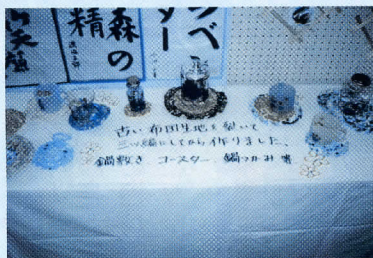 ンベ
ター
森の
精
ら天
古い布団生地を裂いて
三ッ編にしてから作りました。
鍋敷き コースター 鍋つかみ 等